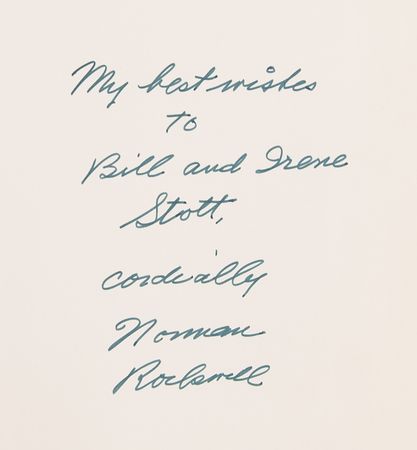 My best wishes
to
Bill and Irene
Stott,
cordially
Norman
Rockwell